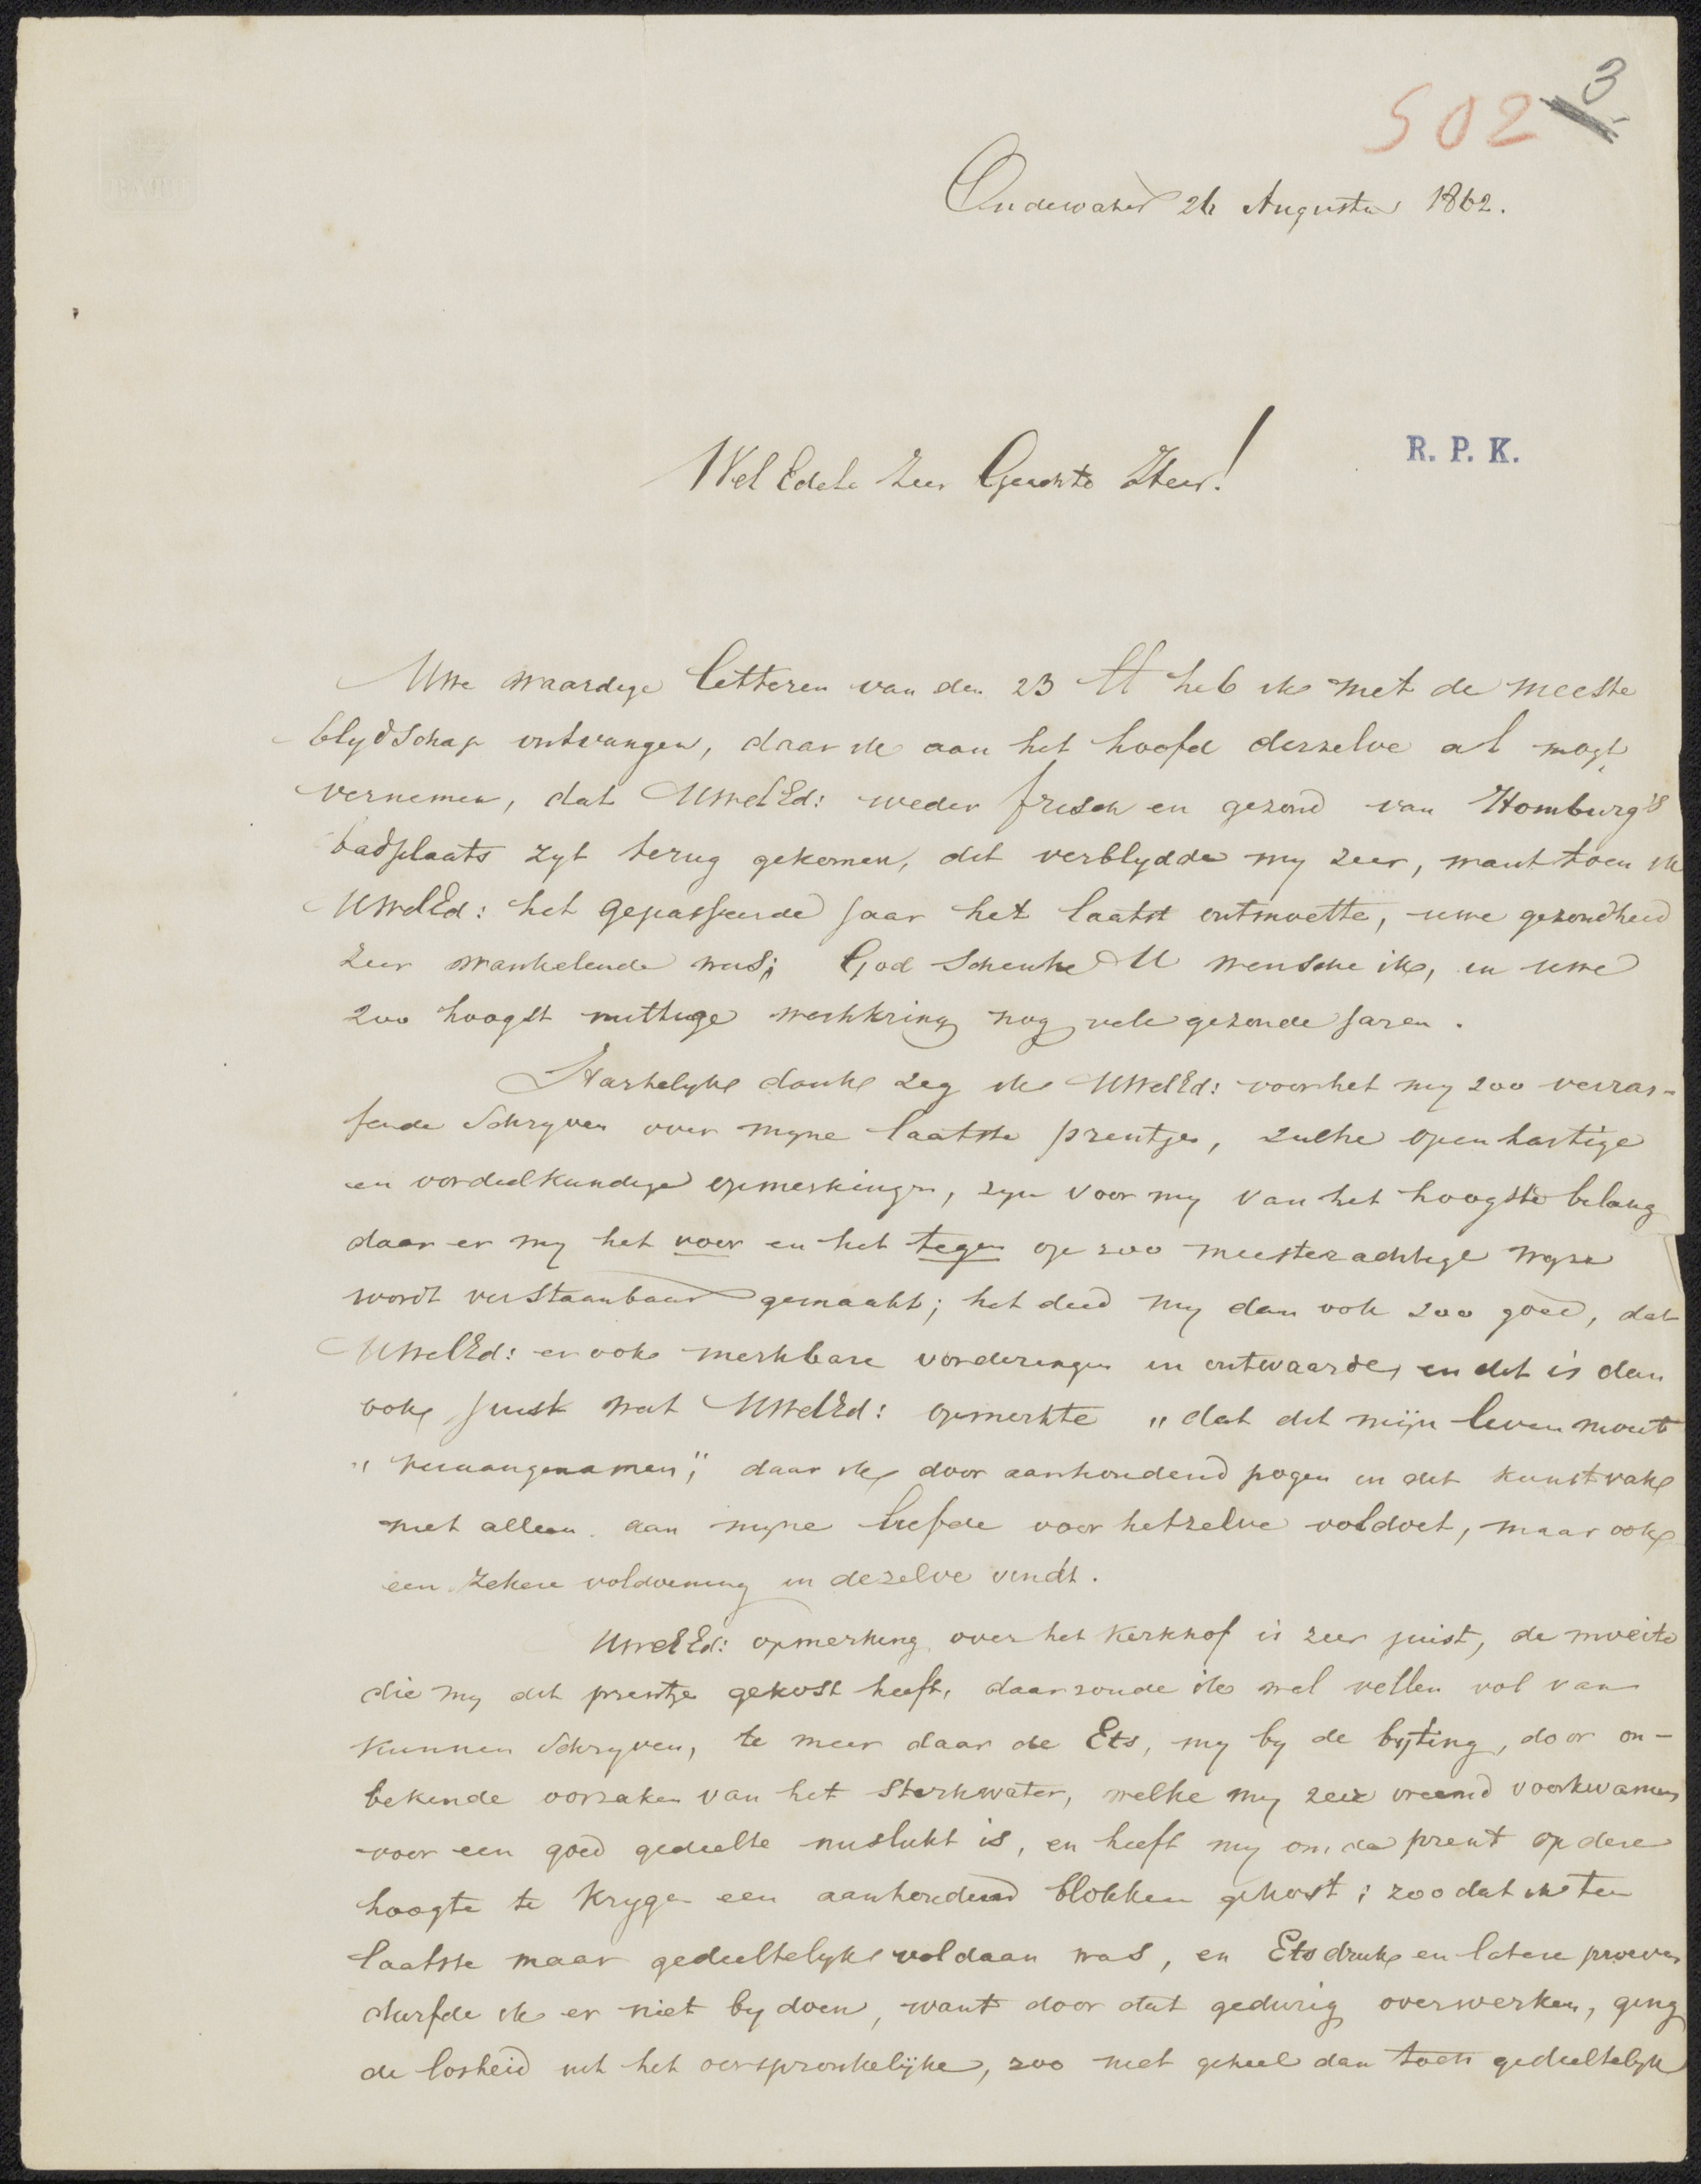 502 3
Oudewater 26 Augustus 1862.
R. P. K.
Wel Edele Zeer Geachte Heer!
Uwe waardige letteren van den 23 ll heb ik met de meeste
blydschap ontvangen, daar ik aan het hoofd derzelve al mogt
vernemen, dat UwelEd: weder frisch en gezond van Homburg's
badplaats zyt terug gekomen, dit verblydde my zeer, want toen ik
UwelEd: het gepasseerde jaar het laatst ontmoette, uwe gezondheid
zeer wankelende was; God schenke U wensche ik, in uwe
zoo hoogst nuttige werkkring nog vele gezonde jaren.
Hartelyke dank zeg ik UwelEd: voor het my zoo verras-
sende schryven over myne laatste prentjes, zulke openhartige
en oordeelkundige opmerkingen, zyn voor my van het hoogste belang
daar er my het voor en het tegen op zoo meesterachtige wyze
wordt verstaanbaar gemaakt; het deed my dan ook zoo goed, dat
UwelEd: er ook merkbare vorderingen in ontwaarde, en dit is dan
ook juist wat UwelEd: opmerkte „dat dit mijn leven moet
„veraangenamen", daar ik door aanhoudend pogen in dit kunstvak
niet alleen aan myne liefde voor hetzelve voldoet, maar ook
een zekere voldoening in dezelve vindt.
UwelEd: opmerking over het Kerkhof is zeer juist, de moeite
die my dit prentje gekost heeft, daar zoude ik wel vellen vol van
kunnen schryven, te meer daar de Ets, my by de byting, door on-
bekende oorzaken van het sterkwater, welke my zeer vreemd voorkwamen
voor een goed gedeelte mislukt is, en heeft my om de prent op deze
hoogte te krygen een aanhoudend blokken gekost; zoo dat ik ten
laatste maar gedeeltelyk voldaan was, en Etsdruk en latere proeven
durfde ik er niet by doen, want door dat gedurig overwerken, ging
de losheid uit het oorspronkelijke, zoo niet geheel dan toch gedeeltelyk